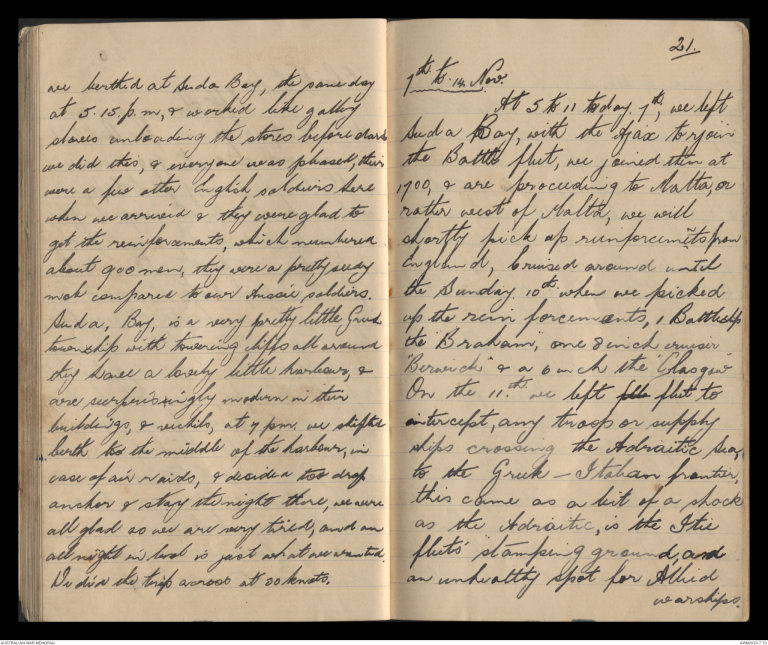 we berthed at Suda Bay, the same day
at 5.15. p.m, & worked like galley
slaves unloading the stores before dark
we did this, & everyone was pleased, their
were a few other English soldiers here
when we arrived & they were glad to
get the reinforcements, which numbered
about 900 men, they were a pretty seedy
mob compared to our Aussie soldiers.
Suda, Bay, is a very pretty little Greek
township with towering cliffs all around
they have a lovely little harbour, &
are surprisingly modern in their
buildings, & vechils, at 7 pm. we shifted
berth to the middle of the harbour, in
case of air raids, & decided too drop
anchor & stay the night there, we were
all glad as we are very tired, and an
all night in bed is just what we wanted.
We did the trip across at 30 knots.
21.
7th to 14 Nov.
At 5 to 11 today, 7th, we left
Suda Bay, with the Ajax to rjoin
the Battle fleet, we joined them at
1700, & are proceeding to Malta, or
rather west of Malta, we will
shortly pick up reinforcemets from
England, bruised around until
the Sunday 10th when we picked
up the rein forcements, 1 Battleship
the "Braham", one 8 inch cruiser
"Berwick" & a 6 inch the "Glasgow"
On the 11th we left fleet to
intercept, any troop or supply
ships crossing the Adraitic Sea,
to the Greek - Italian frontier,
this came as a bit of a shock
as the Adraitic, is the Itie
fleets' stamping ground, and
an unhealthy spot for Allied
warships.
AUSTRALIAN WAR MEMORIAL